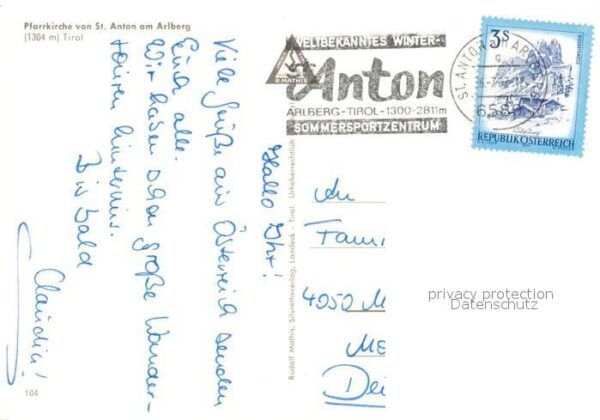 Pfarrkirche von St. Anton am Arlberg
(1304 m) Tirol
Hallo Ihr!
Viele Grüße aus Österreich senden
Euch alle.
Wir haben schon große Wander-
touren hinter uns.
Bis bald
Claudia!
104
Rudolf Mathis, Silvrettaverlag, Landeck - Tirol. Urheberrechtlich
WELTBEKANNTES WINTER-
R MATHIS
St Anton
ARLBERG - TIROL - 1300-2811m
SOMMERSPORTZENTRUM
ST. ANTON AM ARLBERG
6580
3 S
REPUBLIK ÖSTERREICH
An
Fami
4050 M
ME
Deu
privacy protection
Datenschutz